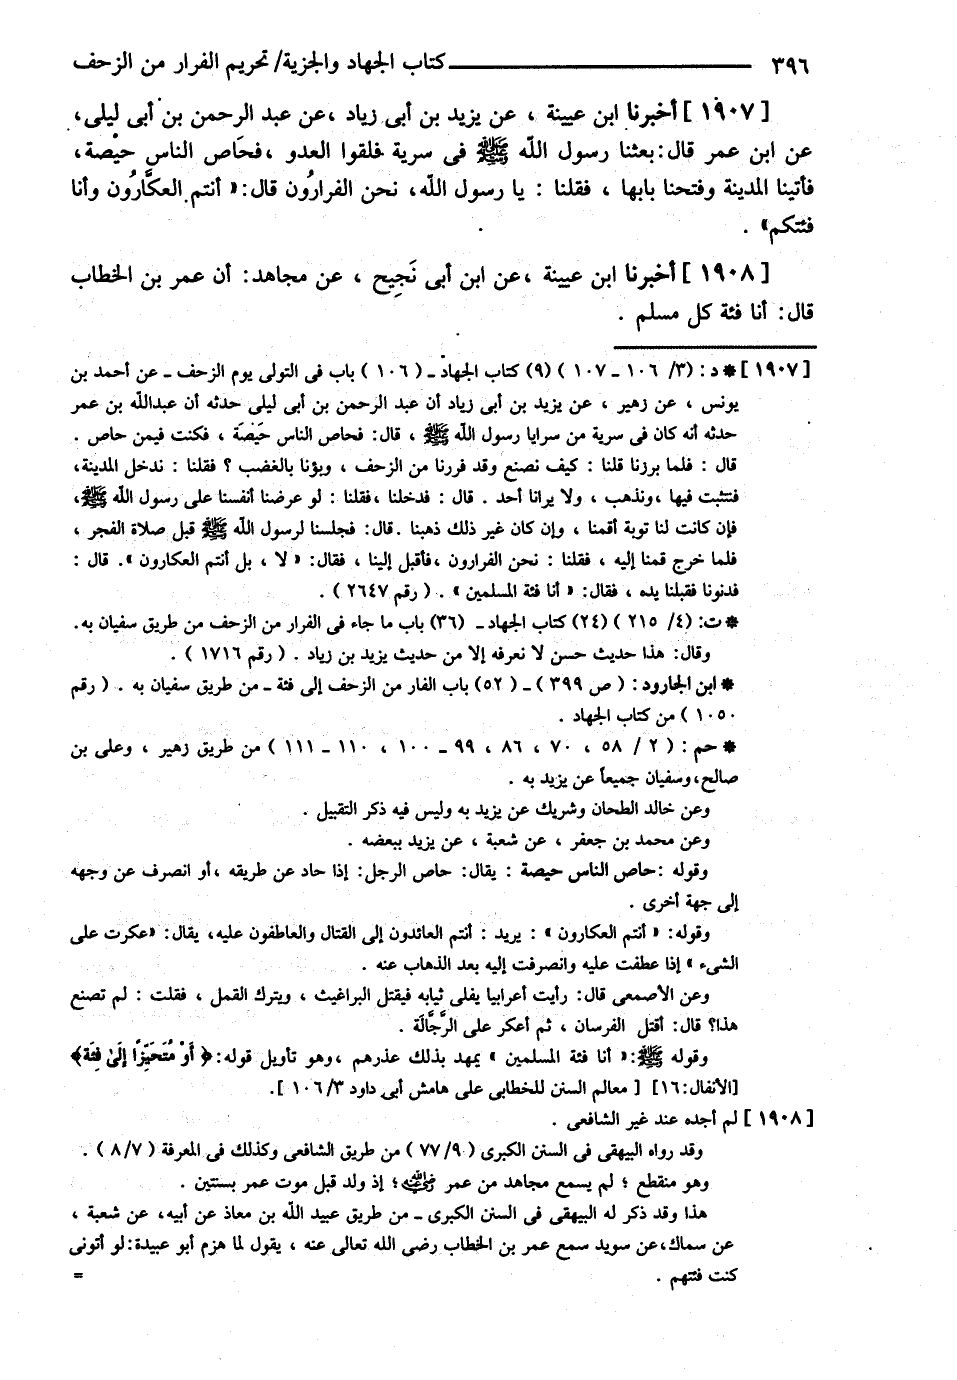 ٣٩٦ ــــــــــــــــــــ كتاب الجهاد والجزية/ تحريم الفرار من الزحف
[ ١٩٠٧ ] أخبرنا ابن عيينة ، عن يزيد بن أبى زياد ،عن عبد الرحمن بن أبى ليلى،
عن ابن عمر قال:بعثنا رسول الله ﷺ فى سرية فلقوا العدو ،فحَاص الناس حيْصة،
فأتينا المدينة وفتحنا بابها ، فقلنا : يا رسول الله، نحن الفرارُون قال:« أنتم العكَّارُون وأنا
فئتكم» .
[ ١٩٠٨ ] أخبرنا ابن عيينة ،عن ابن أبى نَجِيح ، عن مجاهد: أن عمر بن الخطاب
قال: أنا فئة كل مسلم .
[ ١٩٠٧ ] * د : (٣/ ١٠٦ ـ ١٠٧ ) (٩) كتاب الجهاد ـ ( ١٠٦ ) باب فى التولى يوم الزحف ـ عن أحمد بن
يونس ، عن زهير ، عن يزيد بن أبى زياد أن عبد الرحمن بن أبى ليلى حدثه أن عبدالله بن عمر
حدثه أنه كان فى سرية من سرايا رسول الله ﷺ ، قال: فحاص الناس حَيْصَة ، فكنت فيمن حاص .
قال : فلما برزنا قلنا : كيف نصنع وقد فررنا من الزحف ، وبؤنا بالغضب ؟ فقلنا : ندخل المدينة،
فنتثبت فيها ،ونذهب ، ولا يرانا أحد . قال : فدخلنا ،فقلنا : لو عرضنا أنفسنا على رسول الله ﷺ،
فإن كانت لنا توبة أقمنا ، وإن كان غير ذلك ذهبنا .قال: فجلسنا لرسول الله ﷺ قبل صلاة الفجر ،
فلما خرج قمنا إليه ، فقلنا : نحن الفرارون ،فأقبل إلينا ، فقال: « لا ، بل أنتم العكارون ». قال :
فدنونا فقبلنا يده ، فقال: « أنا فئة المسلمين » . ( رقم ٢٦٤٧ ) .
* ت: (٤/ ٢١٥ ) (٢٤) كتاب الجهاد ـ (٣٦) باب ما جاء فى الفرار من الزحف من طريق سفيان به.
وقال: هذا حديث حسن لا نعرفه إلا من حديث يزيد بن زياد . ( رقم ١٧١٦ ) .
* ابن الجارود : ( ص ٣٩٩ ) ـ ( ٥٢) باب الفار من الزحف إلى فئة ـ من طريق سفيان به . ( رقم
١٠٥٠ ) من كتاب الجهاد .
* حم : ( ٢ / ٥٨ ، ٧٠ ، ٨٦ ، ٩٩ ـ ١٠٠ ، ١١٠ ـ ١١١ ) من طريق زهير ، وعلى بن
صالح،وسفيان جميعاً عن يزيد به .
وعن خالد الطحان وشريك عن يزيد به وليس فيه ذكر التقبيل .
وعن محمد بن جعفر ، عن شعبة ، عن يزيد ببعضه .
وقوله :حاص الناس حيصة : يقال: حاص الرجل: إذا حاد عن طريقه ،أو انصرف عن وجهه
إلى جهة أخرى .
وقوله: « أنتم العكارون » : يريد : أنتم العائدون إلى القتال والعاطفون عليه، يقال: «عكرت على
الشىء » إذا عطفت عليه وانصرفت إليه بعد الذهاب عنه .
وعن الأصمعى قال: رأيت أعرابيا يفلى ثيابه فيقتل البراغيث ، ويترك القمل ، فقلت : لم تصنع
هذا؟ قال: أقتل الفرسان ، ثم أعكر على الرَّجَّالَة .
وقوله ﷺ:« أنا فئة المسلمين » يمهد بذلك عذرهم ،وهو تأويل قوله: ﴿ أَوْ مُتَحَيِّزًا إِلَىٰ فِئَةٍ﴾
[الأنفال:١٦] [ معالم السنن للخطابى على هامش أبى داود ٣/ ١٠٦ ].
[ ١٩٠٨ ] لم أجده عند غير الشافعى .
وقد رواه البيهقى فى السنن الكبرى ( ٩/ ٧٧ ) من طريق الشافعى وكذلك فى المعرفة ( ٧/ ٨ ) .
وهو منقطع ؛ لم يسمع مجاهد من عمر رضي الله عنه ؛ إذ ولد قبل موت عمر بسنتين .
هذا وقد ذكر له البيهقى فى السنن الكبرى ـ من طريق عبيد الله بن معاذ عن أبيه، عن شعبة ،
عن سماك،عن سويد سمع عمر بن الخطاب رضى الله تعالى عنه ، يقول لما هزم أبو عبيدة:لو أتونى
كنت فئتهم . =